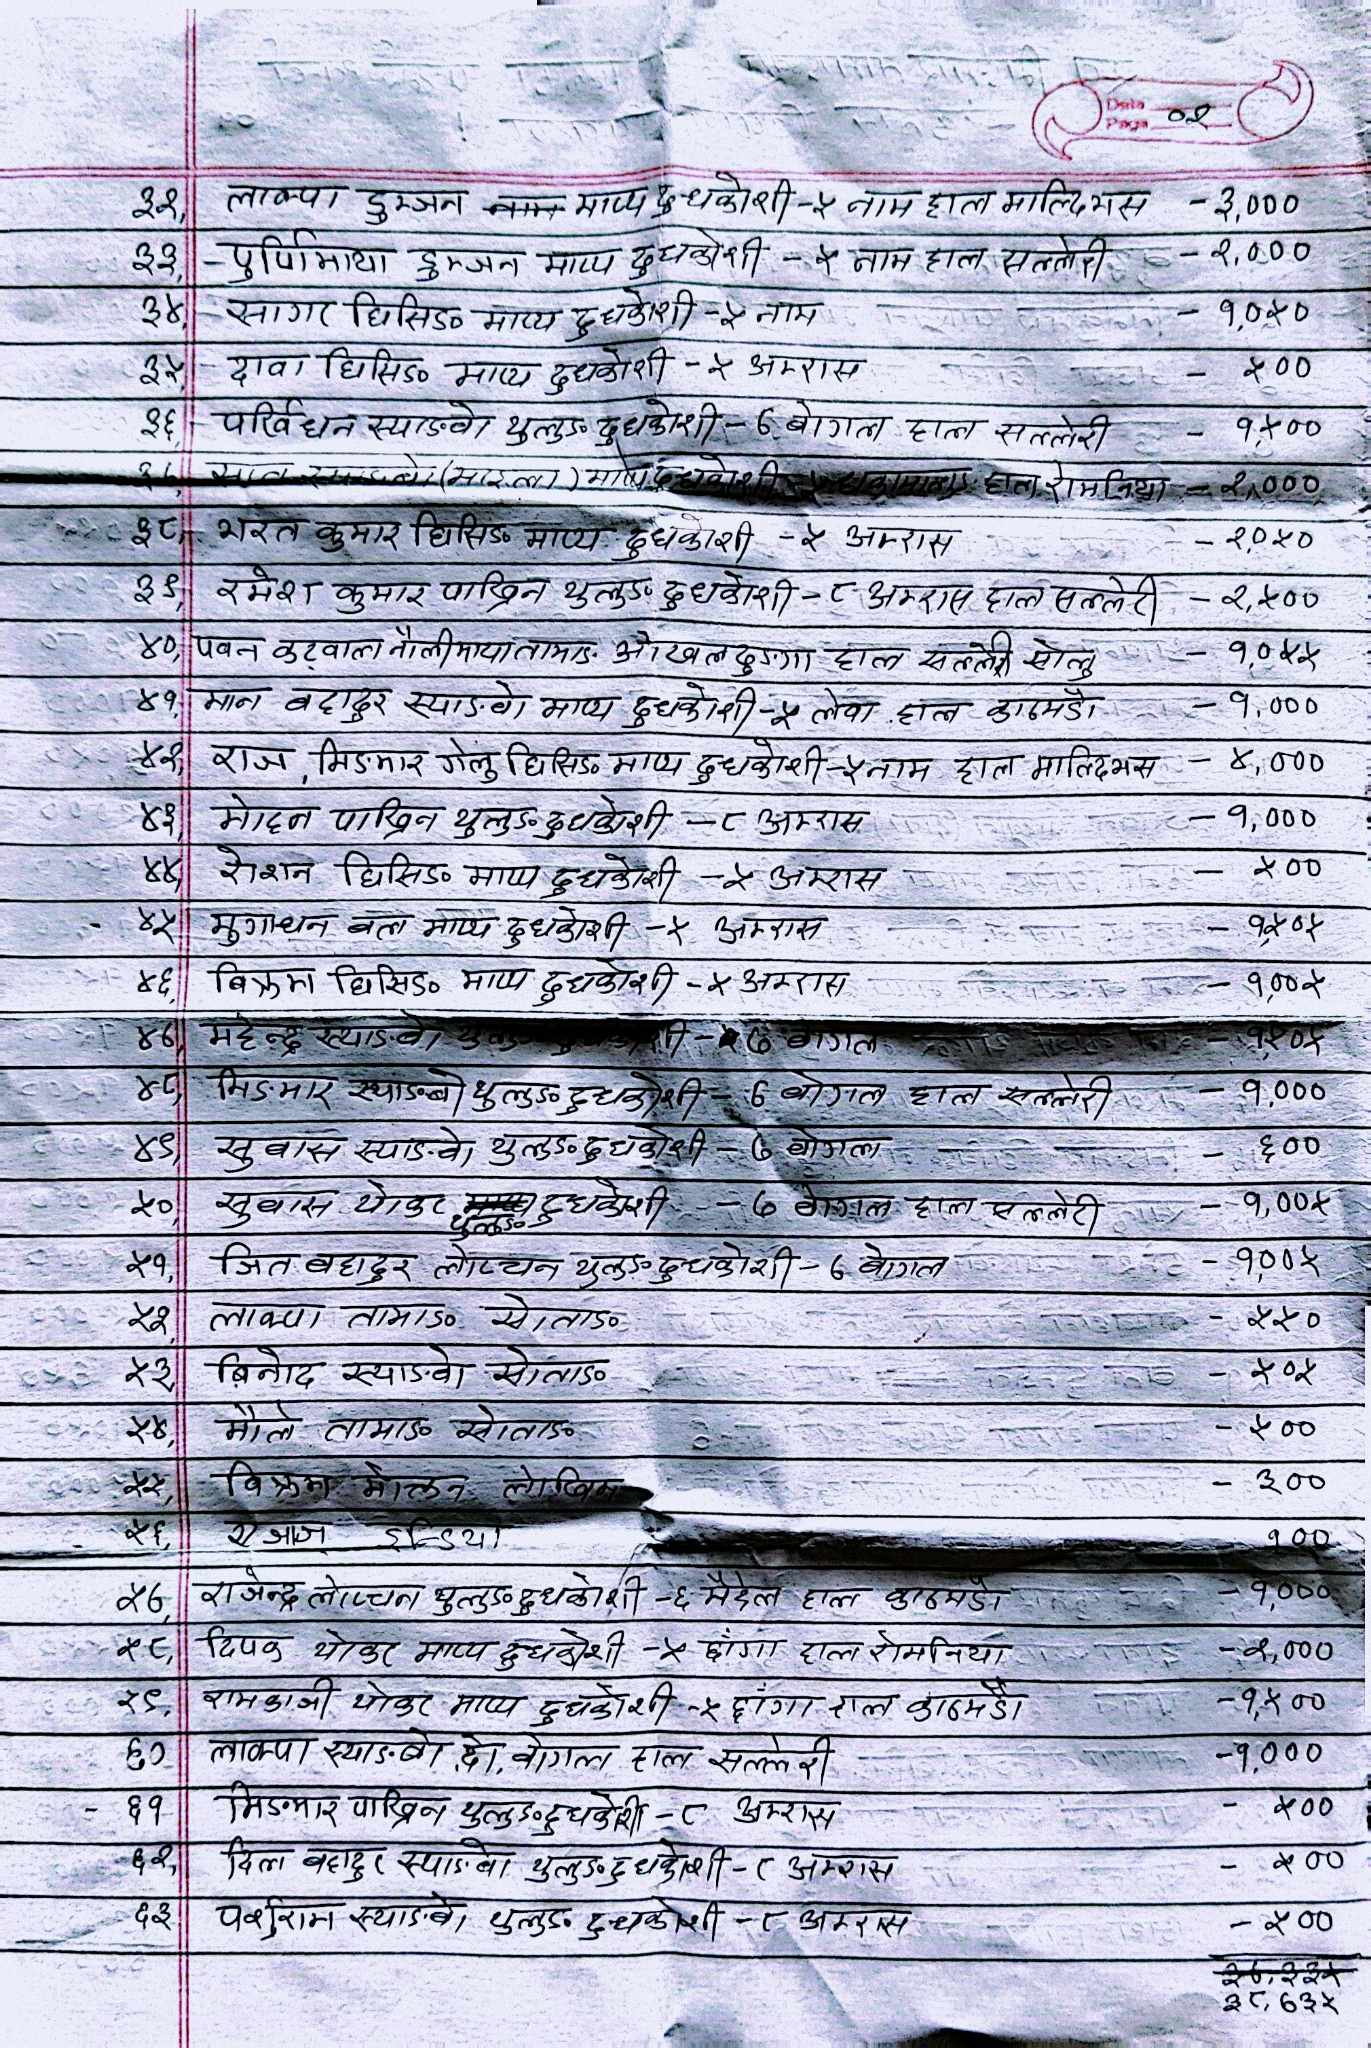 Date
Page ०२
३२, लाक्पा डुम्जन माप्य दुधकोशी -५ नाम हाल माल्दिभस - ३,०००
३३, - पुर्णिमाया डुम्जन माप्य दुधकोशी - ५ नाम हाल सल्लेरी - २,०००
३४, - सागर घिसिङ माप्य दुधकोशी -५ नाम - १,०५०
३५, - दावा घिसिङ माप्य दुधकोशी -५ अम्रास - ५००
३६, - स्याङबो थुलुङ दुधकोशी - ७ बोगल हाल सल्लेरी - १,५००
३७, स्याङबो (माइला) माप्य दुधकोशी - ५ हाल रोमनिया - २,०००
३८, - भरत कुमार घिसिङ माप्य दुधकोशी -५ अम्रास - २,०५०
३९, रमेश कुमार पाख्रिन थुलुङ दुधकोशी -८ अम्रास हाल सल्लेरी - २,५००
४०, पवन कट्वाल मौलीमाया तामाङ ओखलढुङ्गा हाल सल्लेरी सोलु - १,०५५
४१, मान बहादुर स्याङबो माप्य दुधकोशी -५ लेवा हाल काठमडौ - १,०००
४२, राज, मिङमार गेलु घिसिङ माप्य दुधकोशी -५ नाम हाल माल्दिभस - ४,०००
४३, मोहन पाख्रिन थुलुङ दुधकोशी -८ अम्रास - १,०००
४४, रोशन घिसिङ माप्य दुधकोशी -५ अम्रास - ५००
- ४५ मुगाधन बल माप्य दुधकोशी -५ अम्रास - १५०५
४६, बिक्रम घिसिङ माप्य दुधकोशी -५ अम्रास - १,००५
४७, महेन्द्र स्याङबो थुलुङ दुधकोशी - ७ बोगल - १,५०५
४८, मिङमार स्याङबो थुलुङ दुधकोशी - ७ बोगल हाल सल्लेरी - १,०००
४९, सुबास स्याङबो थुलुङ दुधकोशी - ७ बोगल - ६००
५०, सुबास योकर थुलुङ दुधकोशी - ७ बोगल हाल सल्लेरी - १,००५
५१, जित बहादुर लोप्चन थुलुङ दुधकोशी - ७ बोगल - १,००५
५२, लाक्पा तामाङ सोताङ - ५५०
५३, बिनोद स्याङबो सोताङ - ५०५
५४, मौले तामाङ सोताङ - ५००
५५, बिक्रम मोक्तन - ३००
५६, इन्डिया १००
५७, राजेन्द्र लोप्चन थुलुङ दुधकोशी -६ मैदेल हाल काठमडौ - १,०००
५८, दिपक योकर माप्य दुधकोशी -५ छाँगा हाल रोमनिया - २,०००
५९, रामकाजी योकर माप्य दुधकोशी -५ छाँगा हाल काठमडौ - १,५००
६० लाक्पा स्याङबो दो. बोगल हाल सल्लेरी - १,०००
- ६१ मिङमार पाख्रिन थुलुङ दुधकोशी -८ अम्रास - ५००
६२, दिल बहादुर स्याङबो थुलुङ दुधकोशी -८ अम्रास - ५००
६३ पर्शुराम स्याङबो थुलुङ दुधकोशी -८ अम्रास - ५००
३८,७३५